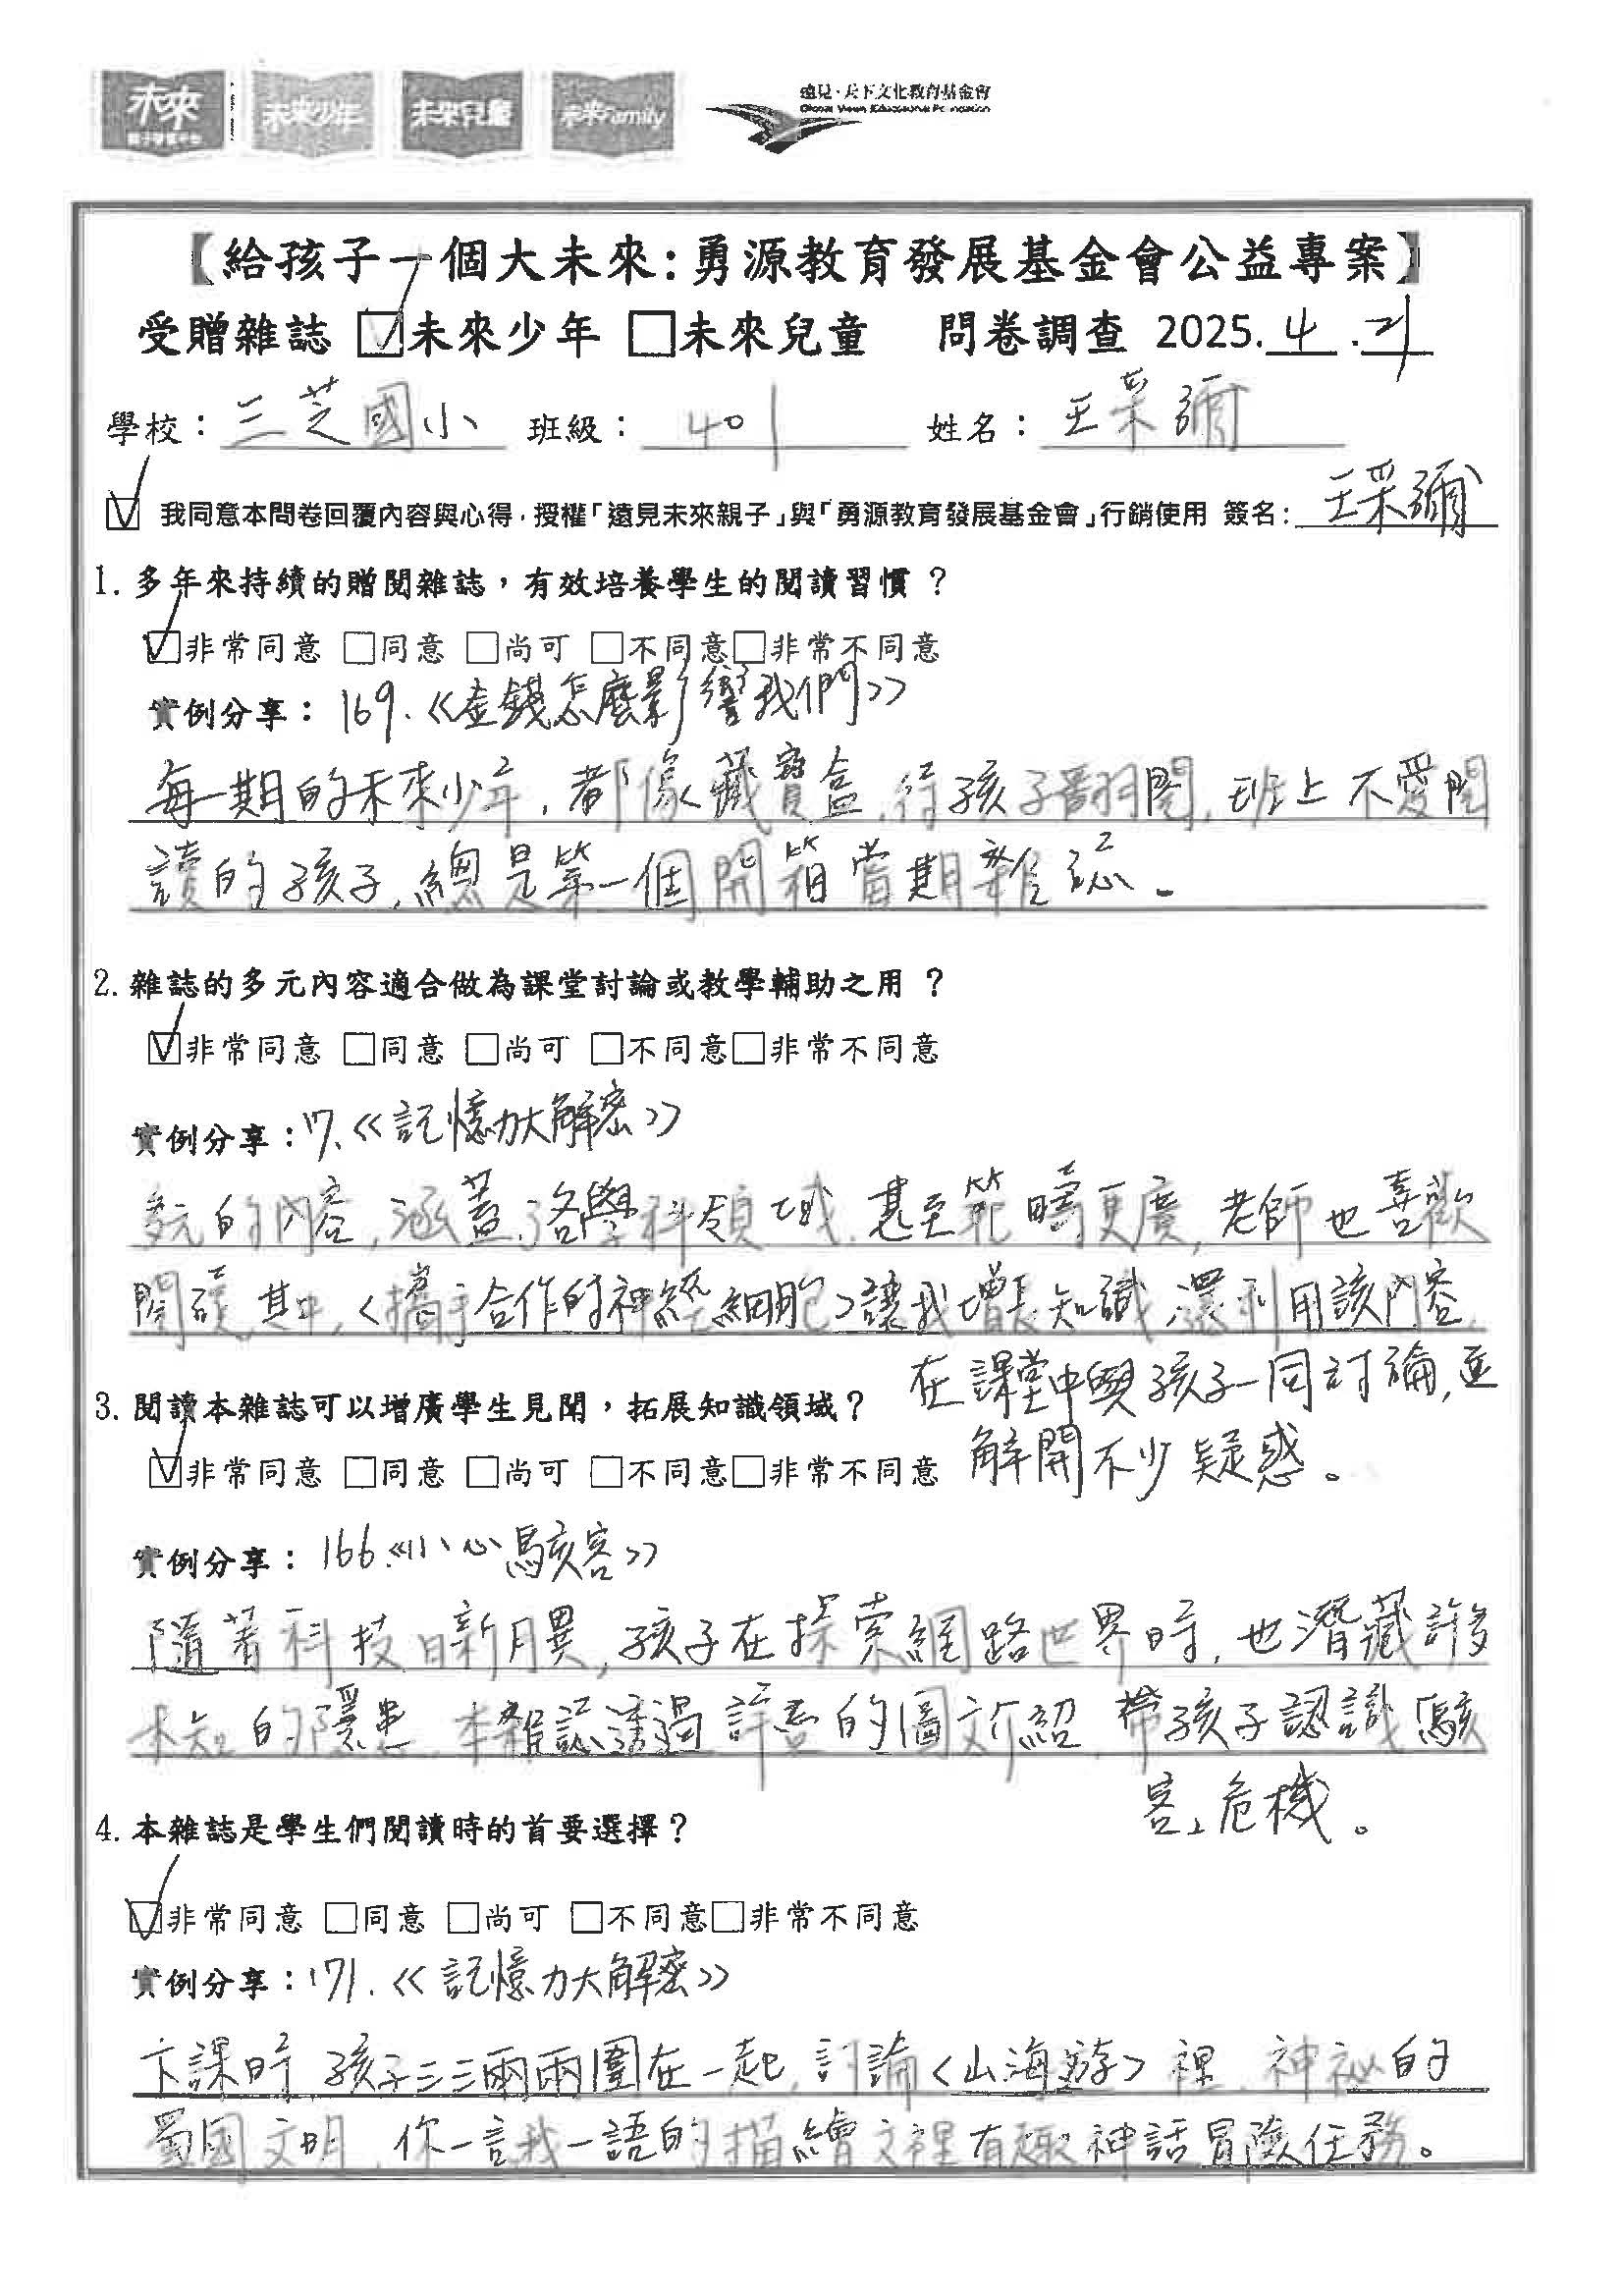 未來
親子學習平台
未來少年
未來兒童
未來Family
遠見‧天下文化教育基金會
Global Views Educational Foundation
【給孩子一個大未來:勇源教育發展基金會公益專案】
受贈雜誌 ☑未來少年 □未來兒童 問卷調查 2025.4.21
學校：三芝國小 班級：401 姓名：王采彌
☑ 我同意本問卷回覆內容與心得，授權「遠見未來親子」與「勇源教育發展基金會」行銷使用 簽名：王采彌
1. 多年來持續的贈閱雜誌，有效培養學生的閱讀習慣？
☑非常同意 □同意 □尚可 □不同意□非常不同意
實例分享：169.《金錢怎麼影響我們》
每一期的未來少年，都像藏寶盒，待孩子翻閱，班上不愛閱
讀的孩子，總是第一個開箱當期雜誌。
2. 雜誌的多元內容適合做為課堂討論或教學輔助之用？
☑非常同意 □同意 □尚可 □不同意□非常不同意
實例分享：17.《記憶力大解密》
多元的內容，涵蓋了各學科領域，甚至範疇更廣，老師也喜歡
閱讀，其中，〈攜手合作的神經細胞〉讓我增長知識，還利用該內容，
在課堂中與孩子一同討論，並
解開不少疑惑。
3. 閱讀本雜誌可以增廣學生見聞，拓展知識領域？
☑非常同意 □同意 □尚可 □不同意□非常不同意
實例分享：166.《小心駭客》
隨著科技日新月異，孩子在探索網路世界時，也潛藏許多
未知的隱患，本雜誌透過詳盡的圖文介紹，帶孩子認識「駭
客」危機。
4. 本雜誌是學生們閱讀時的首要選擇？
☑非常同意 □同意 □尚可 □不同意□非常不同意
實例分享：171.《記憶力大解密》
下課時，孩子三三兩兩圍在一起，討論〈山海游〉裡，神祕的
蜀國文明，你一言我一語的描繪文裡有趣神話冒險任務。